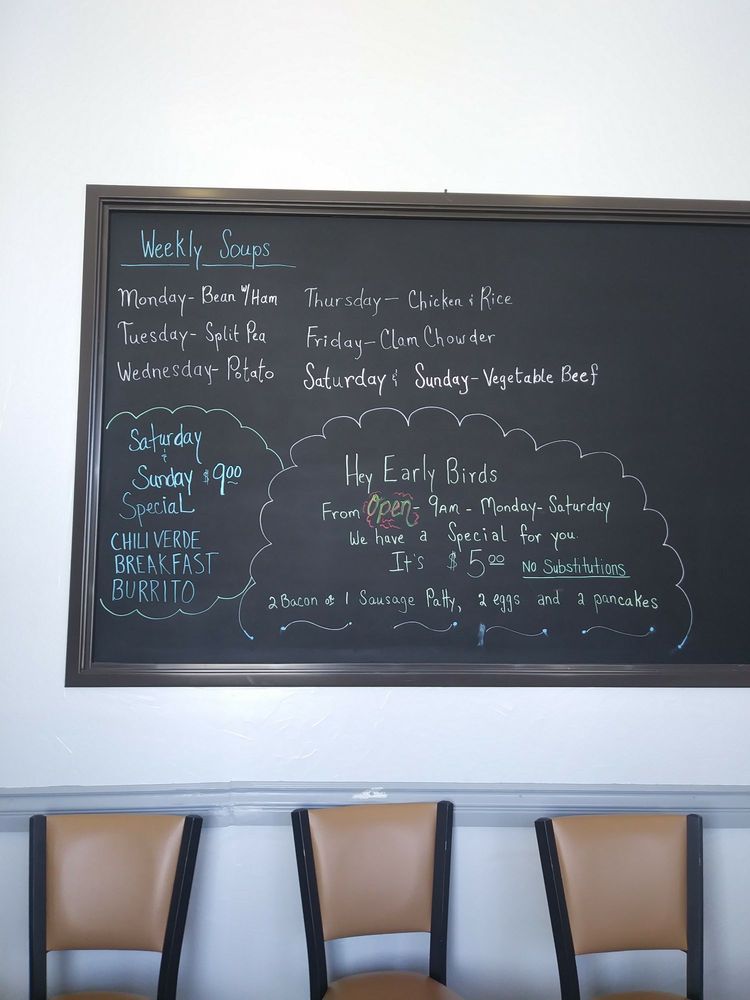 Weekly Soups
Monday- Bean w/Ham
Tuesday- Split Pea
Wednesday- Potato
Thursday- Chicken & Rice
Friday- Clam Chowder
Saturday & Sunday- Vegetable Beef
Saturday
&
Sunday $9.00
Special
CHILI VERDE
BREAKFAST
BURRITO
Hey Early Birds
From Open- 9AM - Monday- Saturday
We have a Special for you.
It's $5.00 No Substitutions
2 Bacon or 1 Sausage Patty, 2 eggs and 2 pancakes